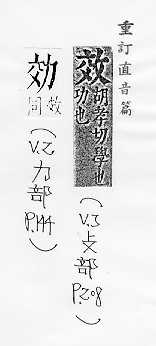 重訂直音篇
效 胡孝切學也
功也
(V.3 攴部
P.208)
効 同效
(V.2 力部
P.144)